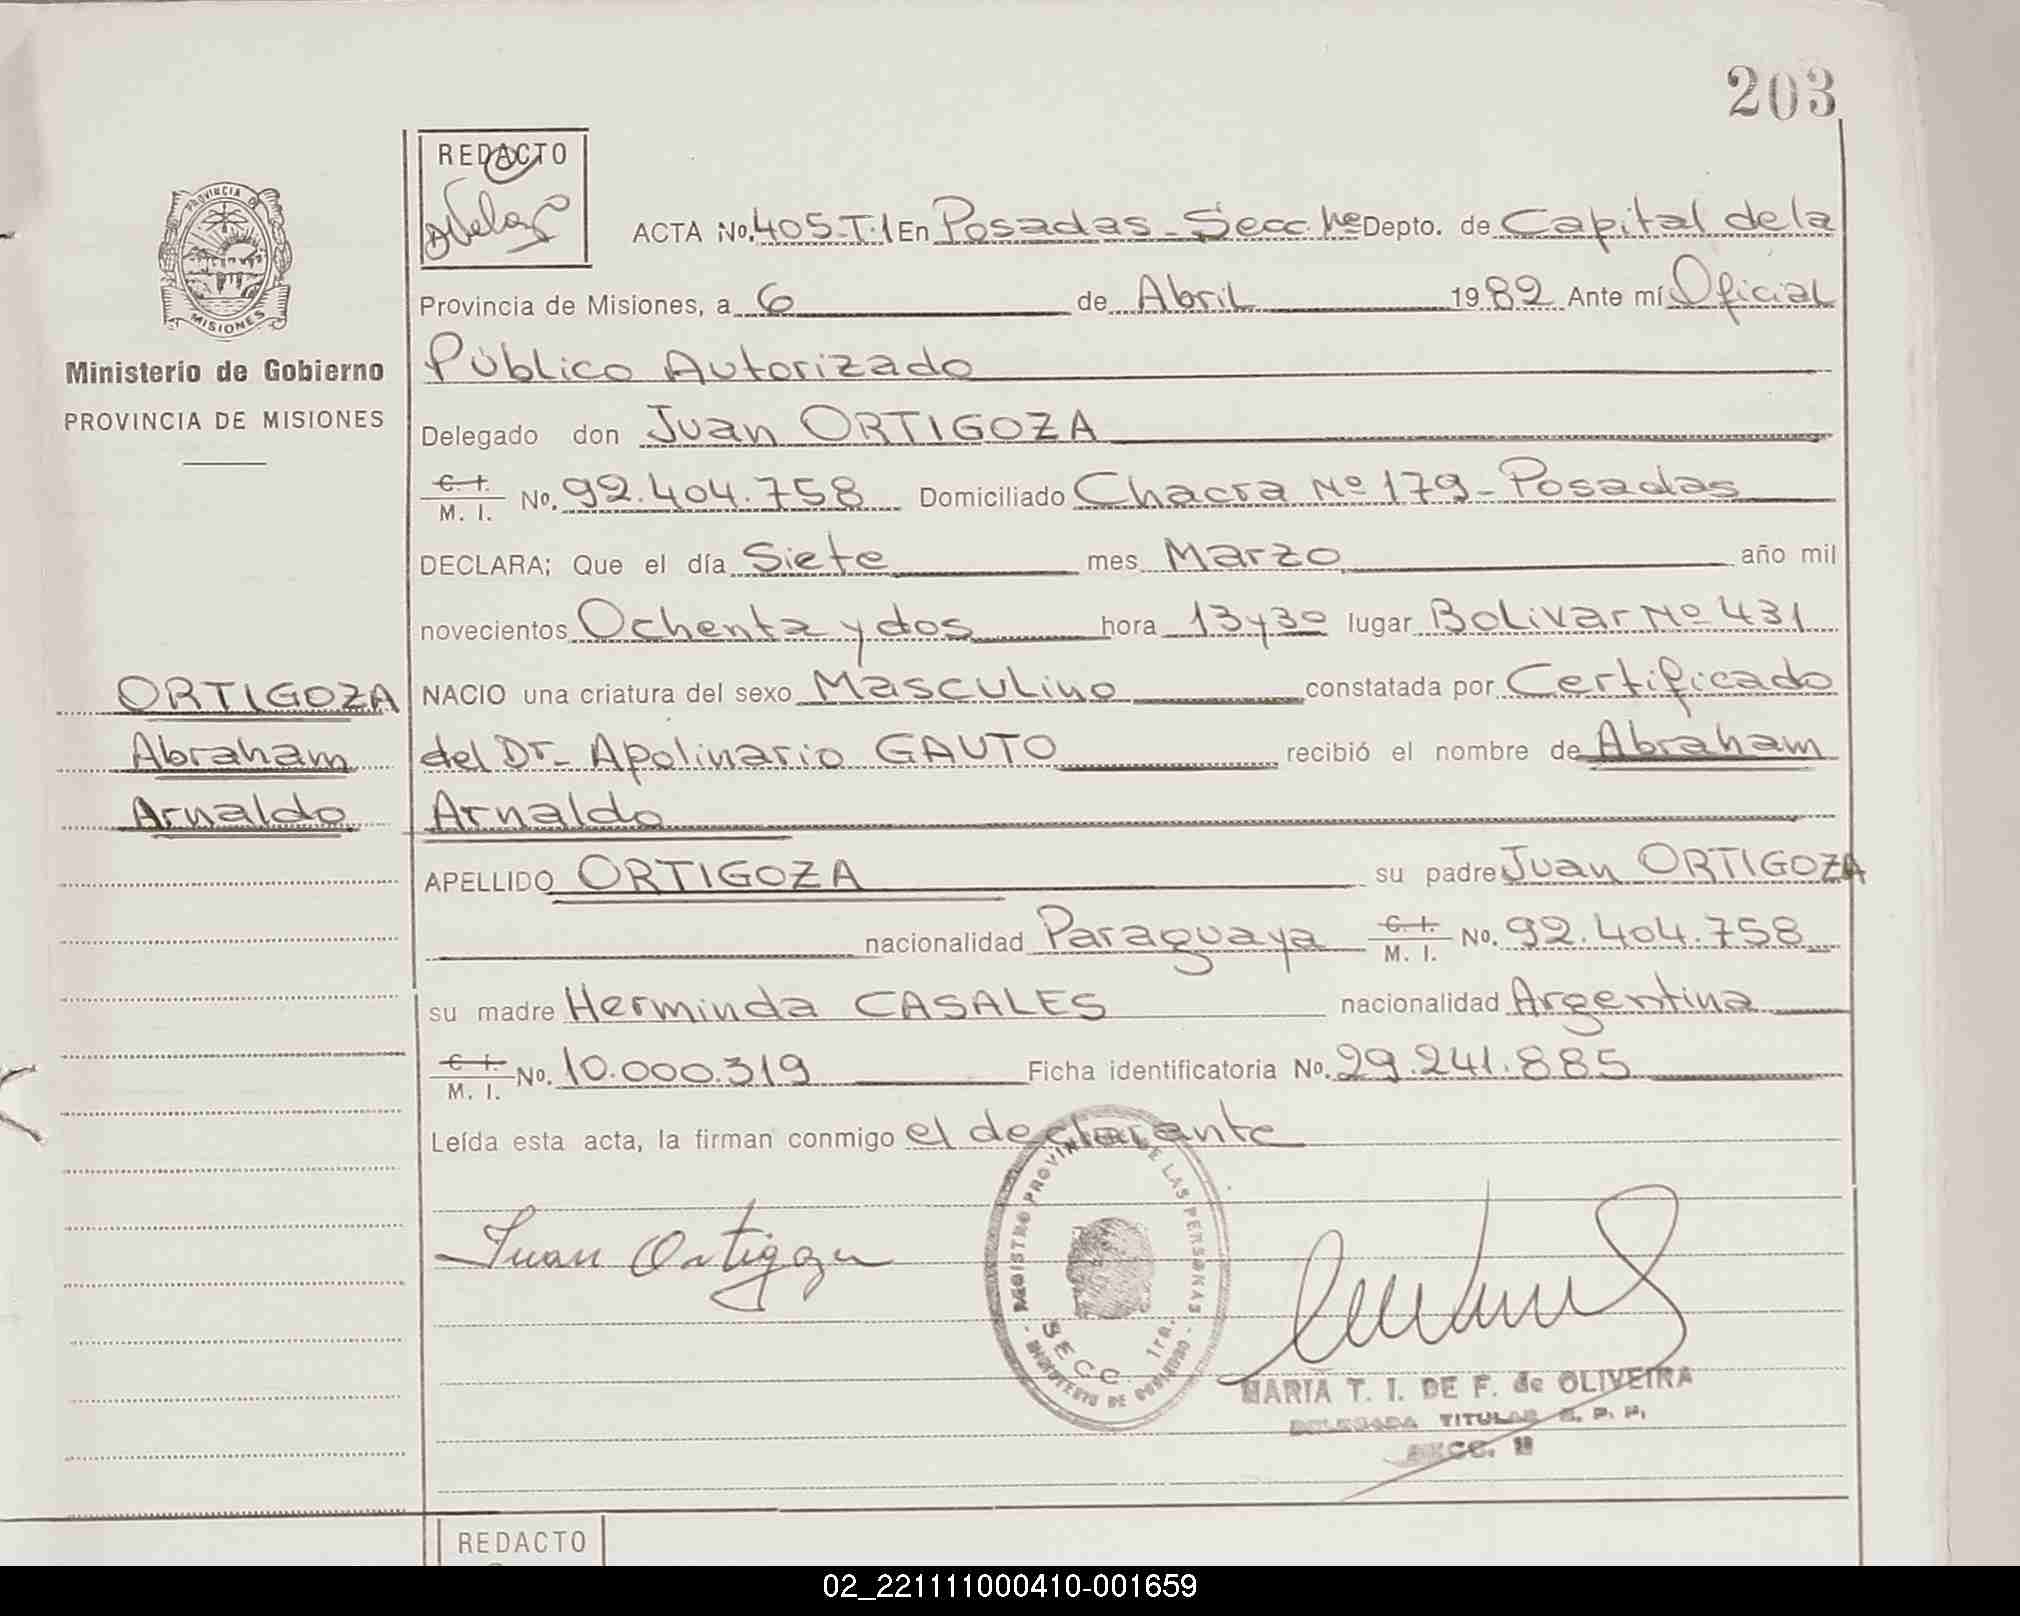 203
REDACTO
PROVINCIA DE
MISIONES
Ministerio de Gobierno
PROVINCIA DE MISIONES
ACTA No. 405-T.1 En Posadas - Secc. 1ra Depto. de Capital de la
Provincia de Misiones, a 6 de Abril 1982 Ante mí Oficial
Público Autorizado
Delegado don Juan ORTIGOZA
C. I. M. I. No. 92.404.758 Domiciliado Chacra Nº 179 - Posadas
DECLARA; Que el día Siete mes Marzo año mil
novecientos Ochenta y dos hora 13y30 lugar Bolivar Nº 431
ORTIGOZA
Abraham
Arnaldo
NACIO una criatura del sexo Masculino constatada por Certificado
del Dr. Apolinario GAUTO recibió el nombre de Abraham
Arnaldo
APELLIDO ORTIGOZA su padre Juan ORTIGOZA
nacionalidad Paraguaya C. I. M. I. No. 92.404.758
su madre Herminda CASALES nacionalidad Argentina
C. I. M. I. No. 10.000.319 Ficha identificatoria No. 29.241.885
Leída esta acta, la firman conmigo el declarante
Juan Ortigoza
REGISTRO PROVIN DE LAS PERSONAS
SECC. 1ra.
MARIA T. I. DE F. de OLIVEIRA
DELEGADA TITULAR R. P. P.
SECC.
REDACTO
02_221111000410-001659